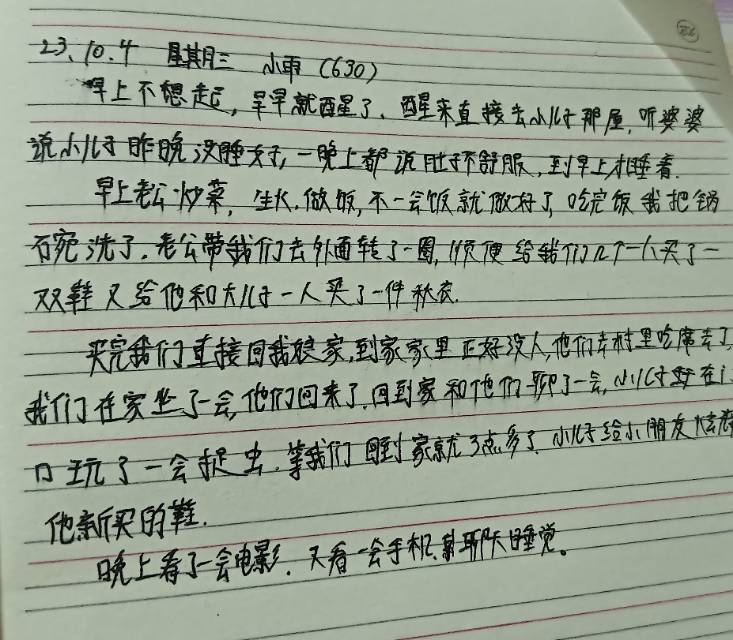 23.10.4 星期三 小雨 (630)
早上不想起,早早就醒了、醒来直接去小儿子那屋,听婆婆
说小儿子昨晚没睡好,一晚上都说肚子不舒服,到早上才睡着.
早上老公炒菜,生火.做饭,不一会饭就做好了,吃完饭我把锅
碗洗了.老公带我们去外面转了一圈,顺便给我们几个一人买了一
双鞋又给他和大儿子一人买了一件秋衣.
买完我们直接回我娘家,到家家里正好没人,他们去村里吃席去了
我们在家坐了一会,他们回来了.回到家和他们聊了一会,小儿子在门
口玩了一会捉虫.等我们回到家就3点多了.小儿子给小朋友
他新买的鞋.
晚上看了一会电影.又看一会手机.聊天睡觉。